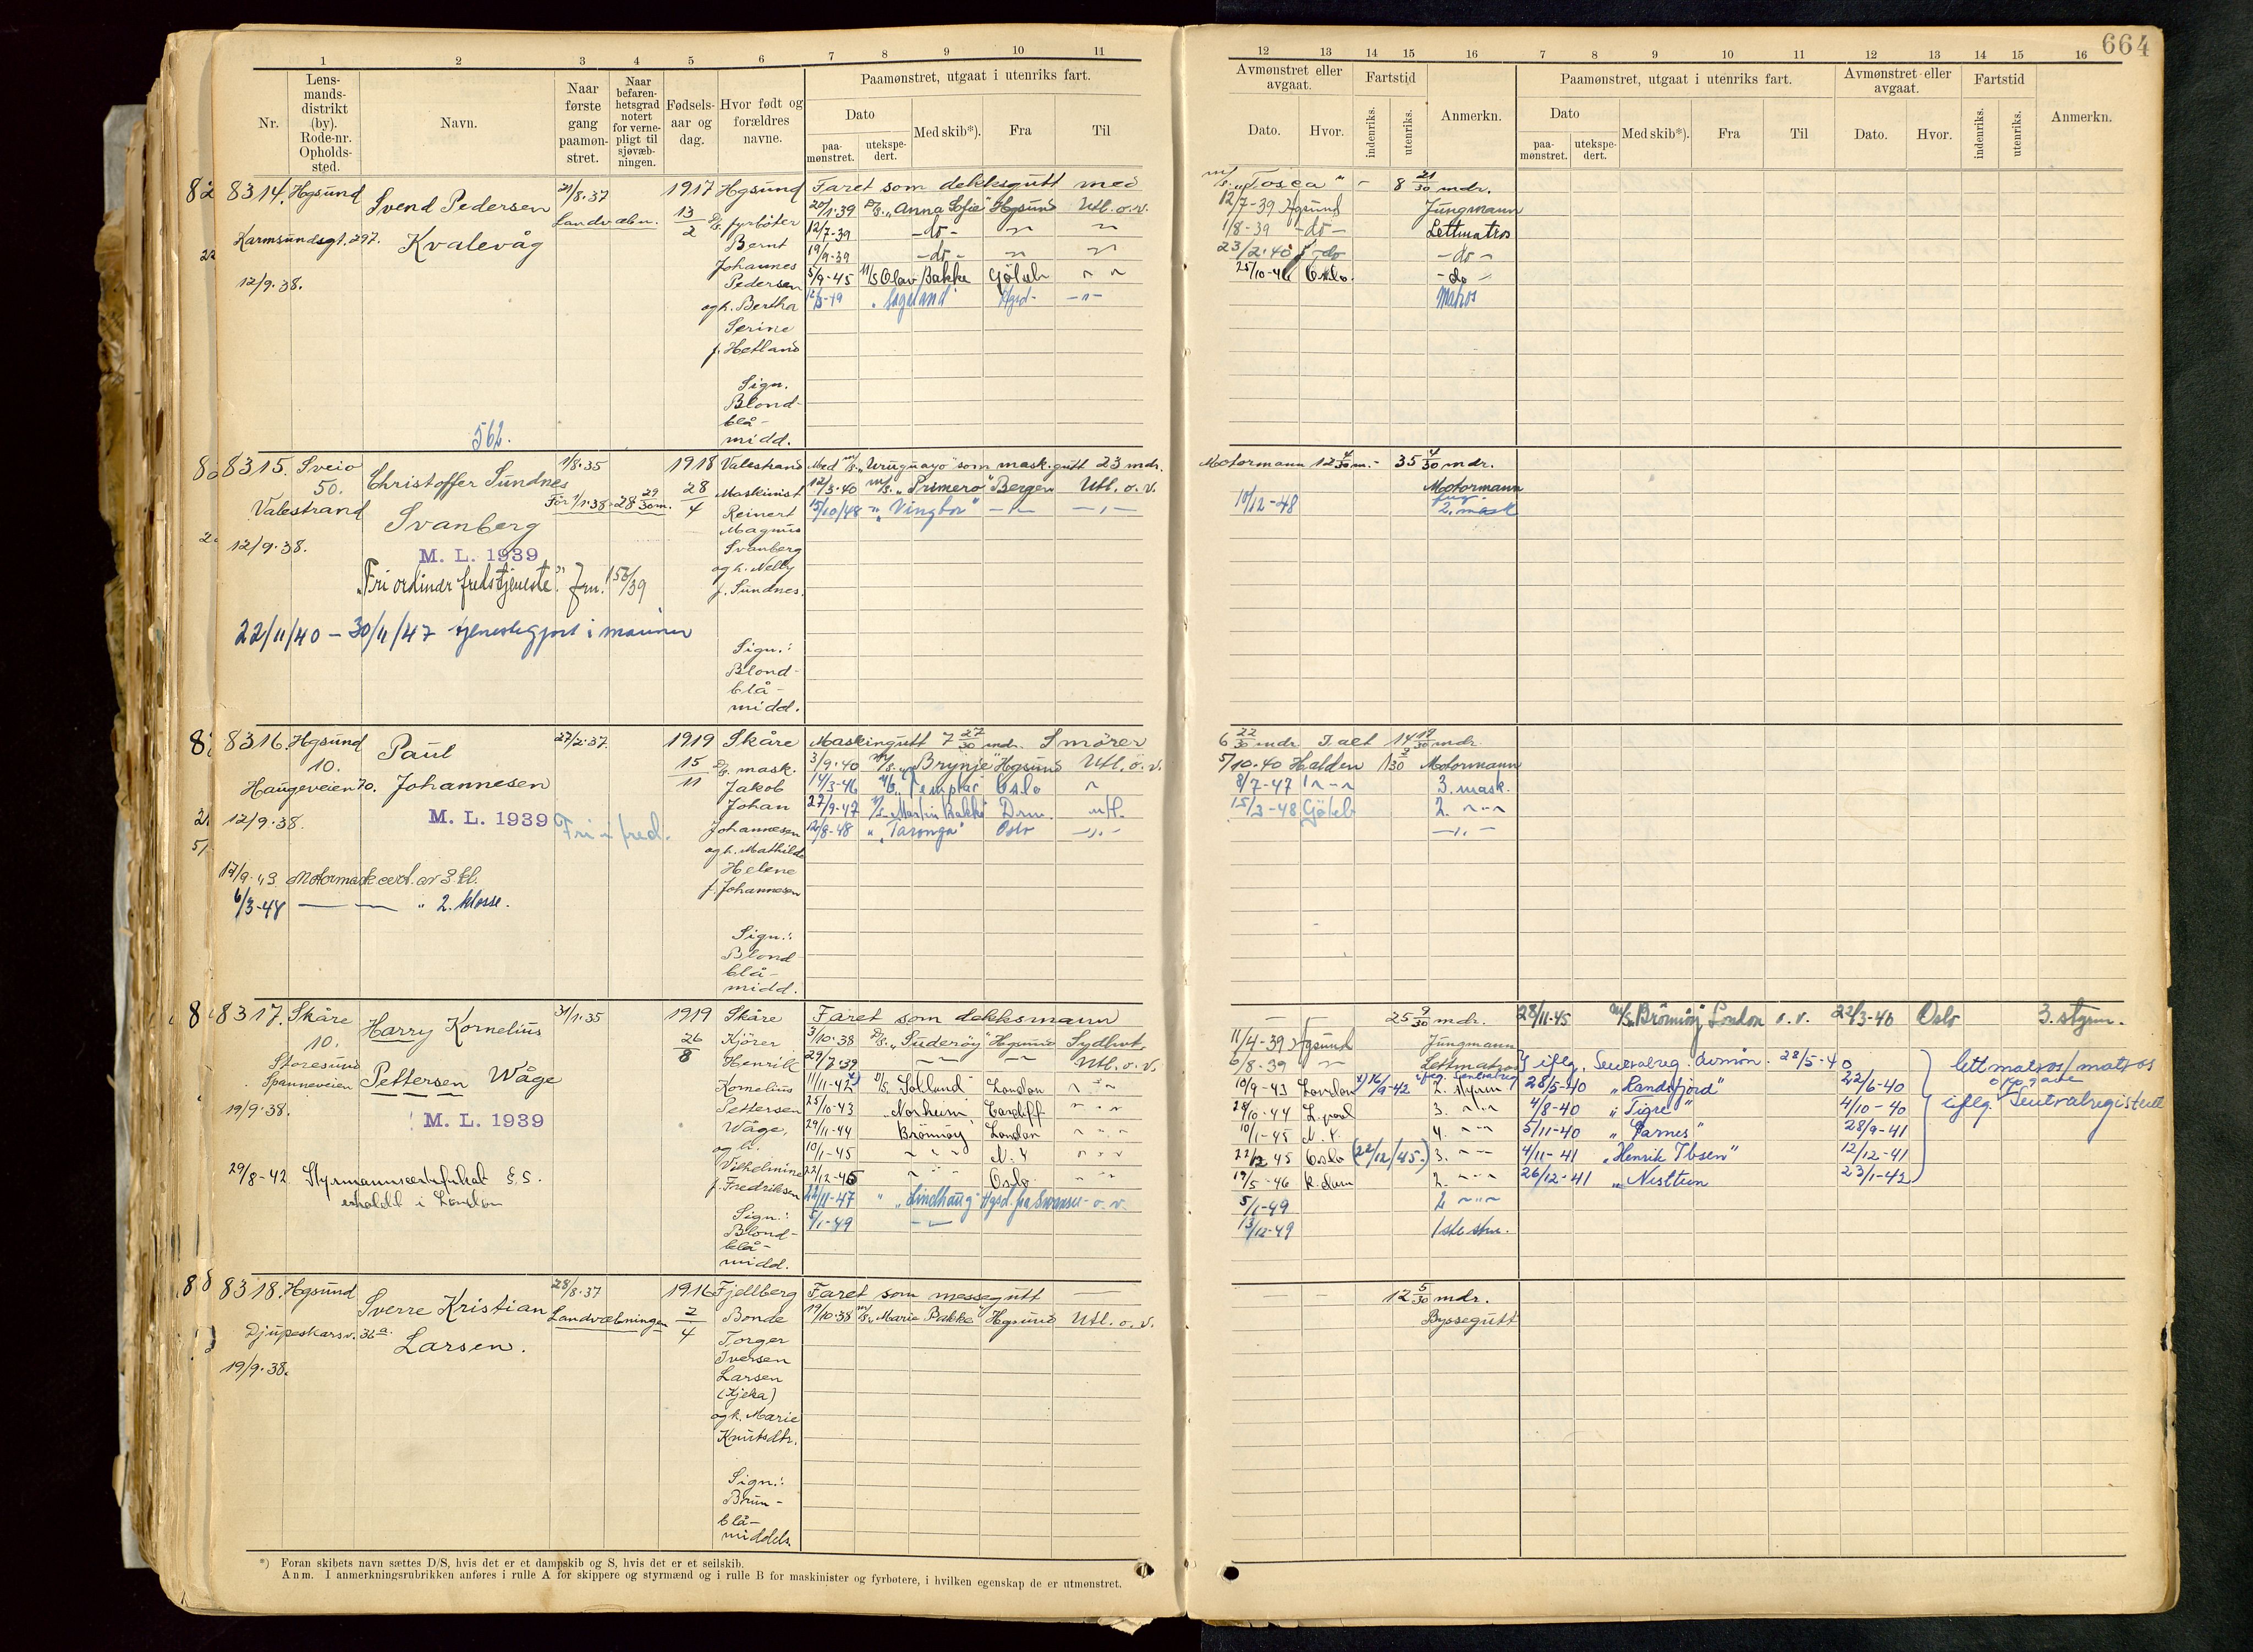 664
1 2 3 4 5 6 7 8 9 10 11
Nr.
Lens-
mands-
distrikt
(by).
Rode-nr.
Opholds-
sted.
Navn.
Naar
første
gang
paamøn-
stret.
Naar
befaren-
hetsgrad
notert
for verne-
pligt til
sjøvæb-
ningen.
Fødsels-
aar og
dag.
Hvor født og
forældres
navne.
Paamønstret, utgaat i utenriks fart.
Dato
paa-
mønstret.
utekspe-
dert.
Med skib*).
Fra
Til
12 13 14 15 16 7 8 9 10 11 12 13 14 15 16
Avmønstret eller
avgaat.
Dato.
Hvor.
Fartstid
indenriks.
utenriks.
Anmerkn.
Paamønstret, utgaat i utenriks fart.
Dato
paa-
mønstret.
utekspe-
dert.
Med skib*).
Fra
Til
Avmønstret eller
avgaat.
Dato.
Hvor.
Fartstid
indenriks.
utenriks.
Anmerkn.
8314. Hgsund
Karmsundsgt. 297.
12/9.38.
Svend Pedersen
Kvalevåg
562.
21/8.37
Landvæbn.
1917
13/2
Hgsund
D/S. fyrbøter
Bernt
Johannes
Pedersen
og h. Bertha
Serine
f. Hetland
Sign.
Blond-
blå-
midd.
Faret som dekksgutt med
20/1.39 D/S. "Anna Sofie" Hgsund Utl. o.v.
12/7-39 -do-
19/9-39 -do-
5/9-45 M/S Olav Bakke Göteb
"Sageland" Hgsd-
M/S. "Tosca" - 8 21/30 mdr.
12/7-39 Hgsund Jungmann
1/8-39 -do- Lettmatros
23/2.40 -do- -do-
25/10-46 Oslo. -do-
Matros
8315. Sveio
50.
Valestrand
12/9.38.
Christoffer Sundnes
Svanberg
M. L. 1939
"Fri ordinær fredstjeneste". Jrn. 156/39
22/11/40 - 30/11/47 tjenestegjort i marinen
1/8.35
Før 1/1.38 - 28 29/30 m.
1918
28/4
Valestrand
Maskinist
Reinert
Magnus
Svanberg
og h. Nelly
f. Sundnes.
Sign.:
Blond-
blå-
midd.
Med M/S. "Uruguayo" som mask.gutt 23 mdr.
12/3.40 M/S. "Primero" Bergen Utl. o.v.
15/10/48 " "Vingtor"
Motormann 12 4/30 m. - 35 4/30 mdr.
Motormann
10/12-48 2. mask
8316. Hgsund
10.
Haugeveien 70.
12/9.38.
Paul
Johannesen
M. L. 1939
Fri i fred.
Motormask.cert. av 3 kl.
6/3-48 " 2. klasse.
27/2.37
1919
15/11
Skåre
D/S. mask.
Jakob
Johan
Johannesen
og h. Mathilde
Helene
f. Johannesen
Sign.:
Blond-
blå-
midd.
Maskingutt 7 27/30 mdr. Smörer
3/9.40 M/S. "Brynje" Hgsund Utl. o.v.
14/3-46 "Templar" Oslo
27/9-47 M/S. Martin Bakke Drm. utl.
12/8-48 "Taronga" Oslo
6 22/30 mdr. I alt 14 19/30 mdr.
5/10.40 Halden Motormann
8/7-47 3. mask.
15/3-48 Göteb 2.
8317. Skåre
10.
Storesund
Spanneveien
19/9.38.
Harry Kornelius
Pettersen Våge
M. L. 1939
29/8-42 Styrmannscertifikat
erholdt i London
31/1.35
1919
26/8
Skåre
Kjörer
Henrik
Kornelius
Pettersen
Våge,
og h.
Vilhelmine
f. Fredriksen
Sign.:
Blond-
blå-
midd.
Faret som dekksmann
3/10.38 D/S. "Suderöy" Hgsund Sydhvt.
29/7.39 Utl. o.v.
11/11-42 x) D/S. "Solland" London
25/10-43 "Norheim" Cardiff
29/11-44 Brönnöy London
10/1-45 N.Y
22/12-45 Oslo
22/11-47 " "Lindhaug" Hgsd. fra Swansea - o.v.
5/1-49
25 9/30 mdr.
11/4-39 Hgsund Jungmann
6/8-39 Lettmatros
10/9-43 London x) 16/9-42 iflg. Sentralreg 2. styrm
28/10-44 L.pool 3.
10/1-45 N.Y. 4.
22/12 45 Oslo (22/12/45.) 3.
19/5-46 K.dam 2.
5/1-49 2
13/12-49 1ste stm.
28/11-45 M/S. Brönnöy London o.v. 22/3-46 Oslo 3. styrm.
iflg. Sentralreg. avmøn. 28/5-40
28/5-40 "Randsfjord" 22/6-40
4/8-40 "Tigre" 4/10-40
5/11-40 "Garnes" 28/9-41
4/11-41 "Henrik Ibsen" 12/12-41
26/12-41 "Nesttun" 23/1-42
lettmatros/matros
iflg. Sentralregisteret
8318. Hgsund
Djupeskarsv. 36a.
19/9.38.
Sverre Kristian
Larsen.
28/8.37
Landvæbningen
1916
2/4
Fjellberg
Bonde
Torger
Iversen
Larsen
(Kjeka)
og h. Marie
Knutsdtr.
Sign.:
Brun-
blå-
middels.
Faret som messegutt
19/10.38 M/S. "Marie Bakke" Hgsund Utl. o.v.
12 5/30 mdr.
Byssegutt
*) Foran skibets navn sættes D/S, hvis det er et dampskib og S, hvis det er et seilskib.
Anm. I anmerkningsrubrikken anføres i rulle A for skippere og styrmænd og i rulle B for maskinister og fyrbøtere, i hvilken egenskap de er utmønstret.